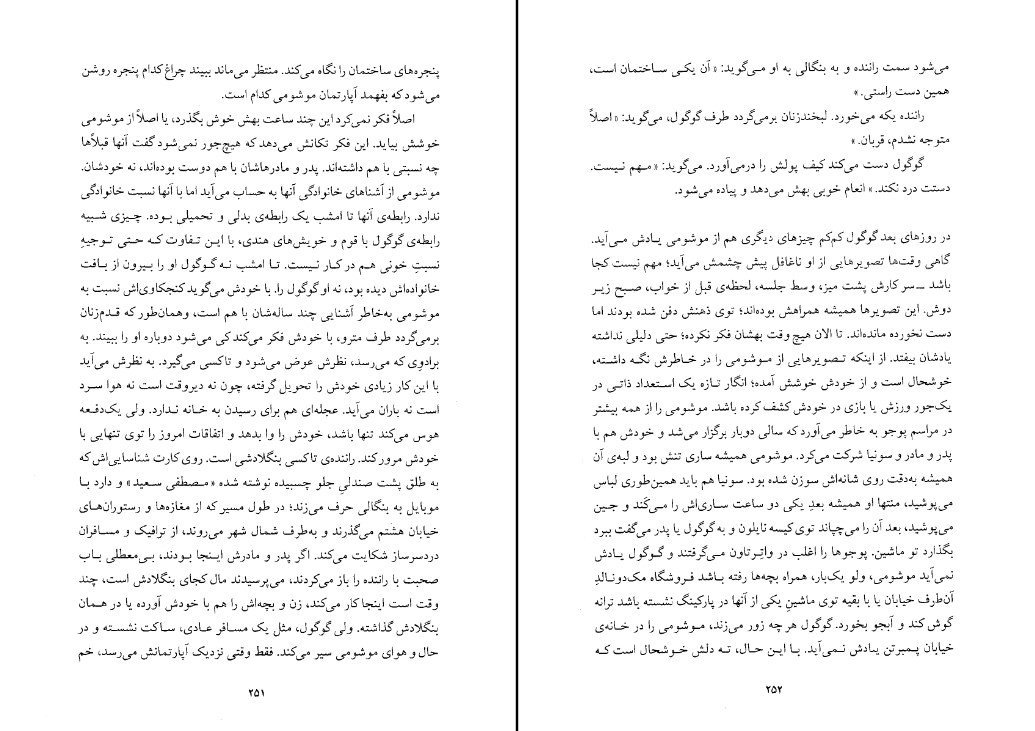 پنجره‌های ساختمان را نگاه می‌کند. منتظر می‌ماند ببیند چراغ کدام پنجره روشن
می‌شود که بفهمد آپارتمان موشومی کدام است.
اصلاً فکر نمی‌کرد این چند ساعت بهش خوش بگذرد، یا اصلاً از موشومی
خوشش بیاید. این فکر تکانش می‌دهد که هیچ‌جور نمی‌شود گفت آنها قبلاًها
چه نسبتی با هم داشته‌اند. پدر و مادرهاشان با هم دوست بوده‌اند، نه خودشان.
موشومی از آشناهای خانوادگی آنها به حساب می‌آید اما با آنها نسبت خانوادگی
ندارد. رابطه‌ی آنها تا امشب یک رابطه‌ی بدلی و تحمیلی بوده. چیزی شبیه
رابطه‌ی گوگول با قوم و خویش‌های هندی، با این تفاوت که حتی توجیهِ
نسبتِ خونی هم در کار نیست. تا امشب نه گوگول او را بیرون از بافت
خانواده‌اش دیده بود، نه او گوگول را. با خودش می‌گوید کنجکاوی‌اش نسبت به
موشومی به‌خاطر آشنایی چند ساله‌شان با هم است، و همان‌طور که قدم‌زنان
برمی‌گردد طرف مترو، با خودش فکر می‌کند کی می‌شود دوباره او را ببیند. به
برادوی که می‌رسد، نظرش عوض می‌شود و تاکسی می‌گیرد. به نظرش می‌آید
با این کار زیادی خودش را تحویل گرفته، چون نه دیروقت است نه هوا سرد
است نه باران می‌آید. عجله‌ای هم برای رسیدن به خانه ندارد. ولی یک‌دفعه
هوس می‌کند تنها باشد، خودش را وا بدهد و اتفاقات امروز را توی تنهایی با
خودش مرور کند. راننده‌ی تاکسی بنگلادشی است. روی کارت شناسایی‌اش که
به طلق پشت صندلیِ جلو چسبیده نوشته شده «مصطفی سعید» و دارد با
موبایل به بنگالی حرف می‌زند؛ در طول مسیر که از مغازه‌ها و رستوران‌های
خیابان هشتم می‌گذرند و به‌طرف شمال شهر می‌روند، از ترافیک و مسافران
دردسرساز شکایت می‌کند. اگر پدر و مادرش اینجا بودند، بی‌معطلی باب
صحبت با راننده را باز می‌کردند، می‌پرسیدند مال کجای بنگلادش است، چند
وقت است اینجا کار می‌کند، زن و بچه‌اش را هم با خودش آورده یا در همان
بنگلادش گذاشته. ولی گوگول، مثل یک مسافر عادی، ساکت نشسته و در
حال و هوای موشومی سیر می‌کند. فقط وقتی نزدیک آپارتمانش می‌رسد، خم
۲۵۱
می‌شود سمت راننده و به بنگالی به او می‌گوید: «آن یکی ساختمان است،
همین دست راستی.»
راننده یکه می‌خورد. لبخندزنان برمی‌گردد طرف گوگول، می‌گوید: «اصلاً
متوجه نشدم، قربان.»
گوگول دست می‌کند کیف پولش را درمی‌آورد. می‌گوید: «مهم نیست.
دستت درد نکند.» انعام خوبی بهش می‌دهد و پیاده می‌شود.
در روزهای بعد گوگول کم‌کم چیزهای دیگری هم از موشومی یادش می‌آید.
گاهی وقت‌ها تصویرهایی از او ناغافل پیش چشمش می‌آید؛ مهم نیست کجا
باشد ــ سر کارش پشت میز، وسط جلسه، لحظه‌ی قبل از خواب، صبح زیر
دوش. این تصویرها همیشه همراهش بوده‌اند؛ توی ذهنش دفن شده بودند اما
دست نخورده مانده‌اند. تا الان هیچ وقت بهشان فکر نکرده؛ حتی دلیلی نداشته
یادشان بیفتد. از اینکه تصویرهایی از موشومی را در خاطرش نگه داشته،
خوشحال است و از خودش خوشش آمده؛ انگار تازه یک استعداد ذاتی در
یک‌جور ورزش یا بازی در خودش کشف کرده باشد. موشومی را از همه بیشتر
در مراسم پوجو به خاطر می‌آورد که سالی دوبار برگزار می‌شد و خودش هم با
پدر و مادر و سونیا شرکت می‌کرد. موشومی همیشه ساری تنش بود و لبه‌ی آن
همیشه به‌دقت روی شانه‌اش سوزن شده بود. سونیا هم باید همین‌طوری لباس
می‌پوشید، منتها او همیشه بعدِ یکی دو ساعت ساری‌اش را می‌کَند و جین
می‌پوشید، بعد آن را می‌چپاند توی کیسه نایلون و به گوگول یا پدر می‌گفت ببرد
بگذارد تو ماشین. پوجوها را اغلب در واتِرتاون می‌گرفتند و گوگول یادش
نمی‌آید موشومی، ولو یک‌بار، همراه بچه‌ها رفته باشد فروشگاه مک‌دونالدِ
آن‌طرف خیابان یا با بقیه توی ماشینِ یکی از آنها در پارکینگ نشسته باشد ترانه
گوش کند و آبجو بخورد. گوگول هر چه زور می‌زند، موشومی را در خانه‌ی
خیابان پمبرتن یادش نمی‌آید. با این حال، ته دلش خوشحال است که
۲۵۲